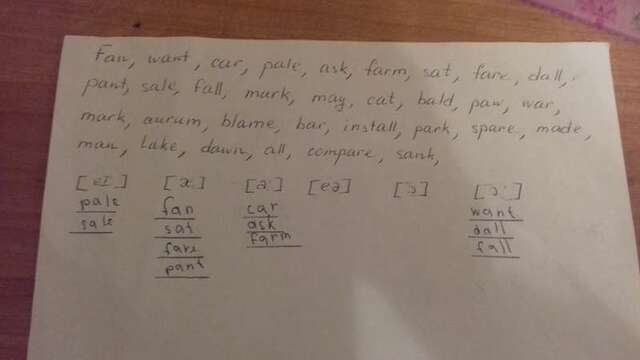 Fan, want, car, pale, ask, farm, sat, fare, dall,
pant, sale, fall, mark, may, cat, bald, paw, war,
mark, aurum, blame, bar, install, park, spare, made,
man, lake, dawn, all, compare, sank,
[eɪ] [æ] [a:] [eə] [ɔ] [ɔ:]
pale fan car want
sale sat ask dall
fare farm fall
pant